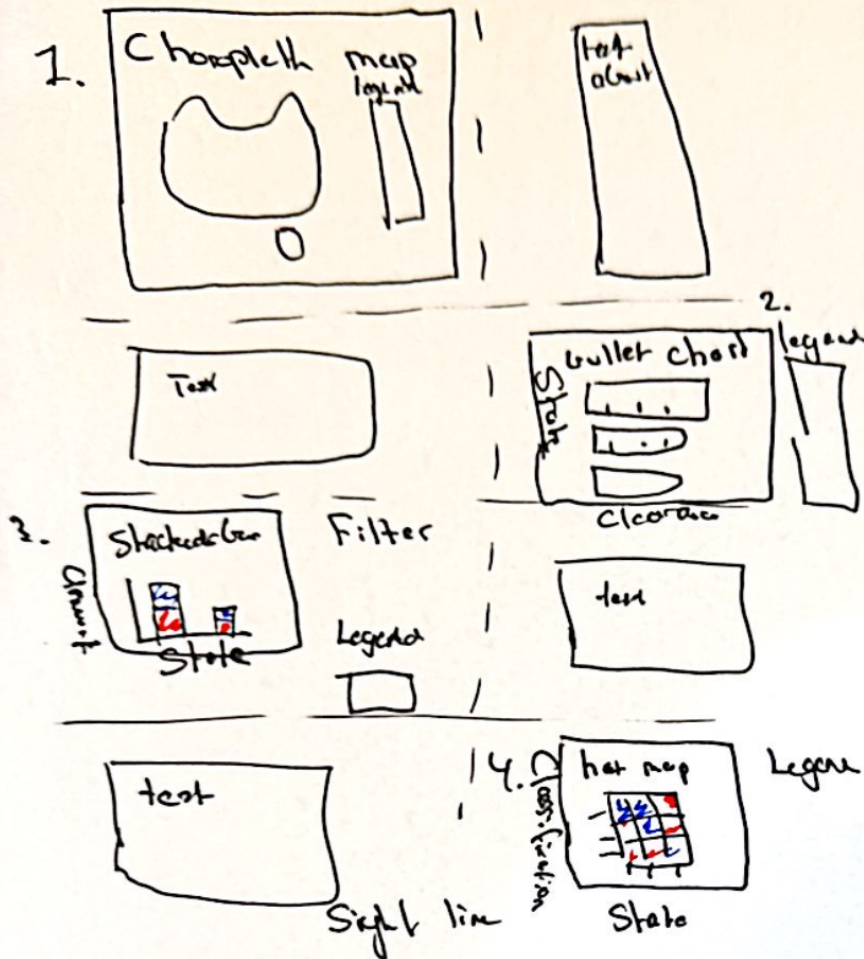 1.
Choropleth map
legend
text
about
2.
legend
Text
bullet chart
State
3.
Stacked bar
Filter
Amount
State
Legend
text
text
4.
heat map
Legend
Classification
State
Sight line